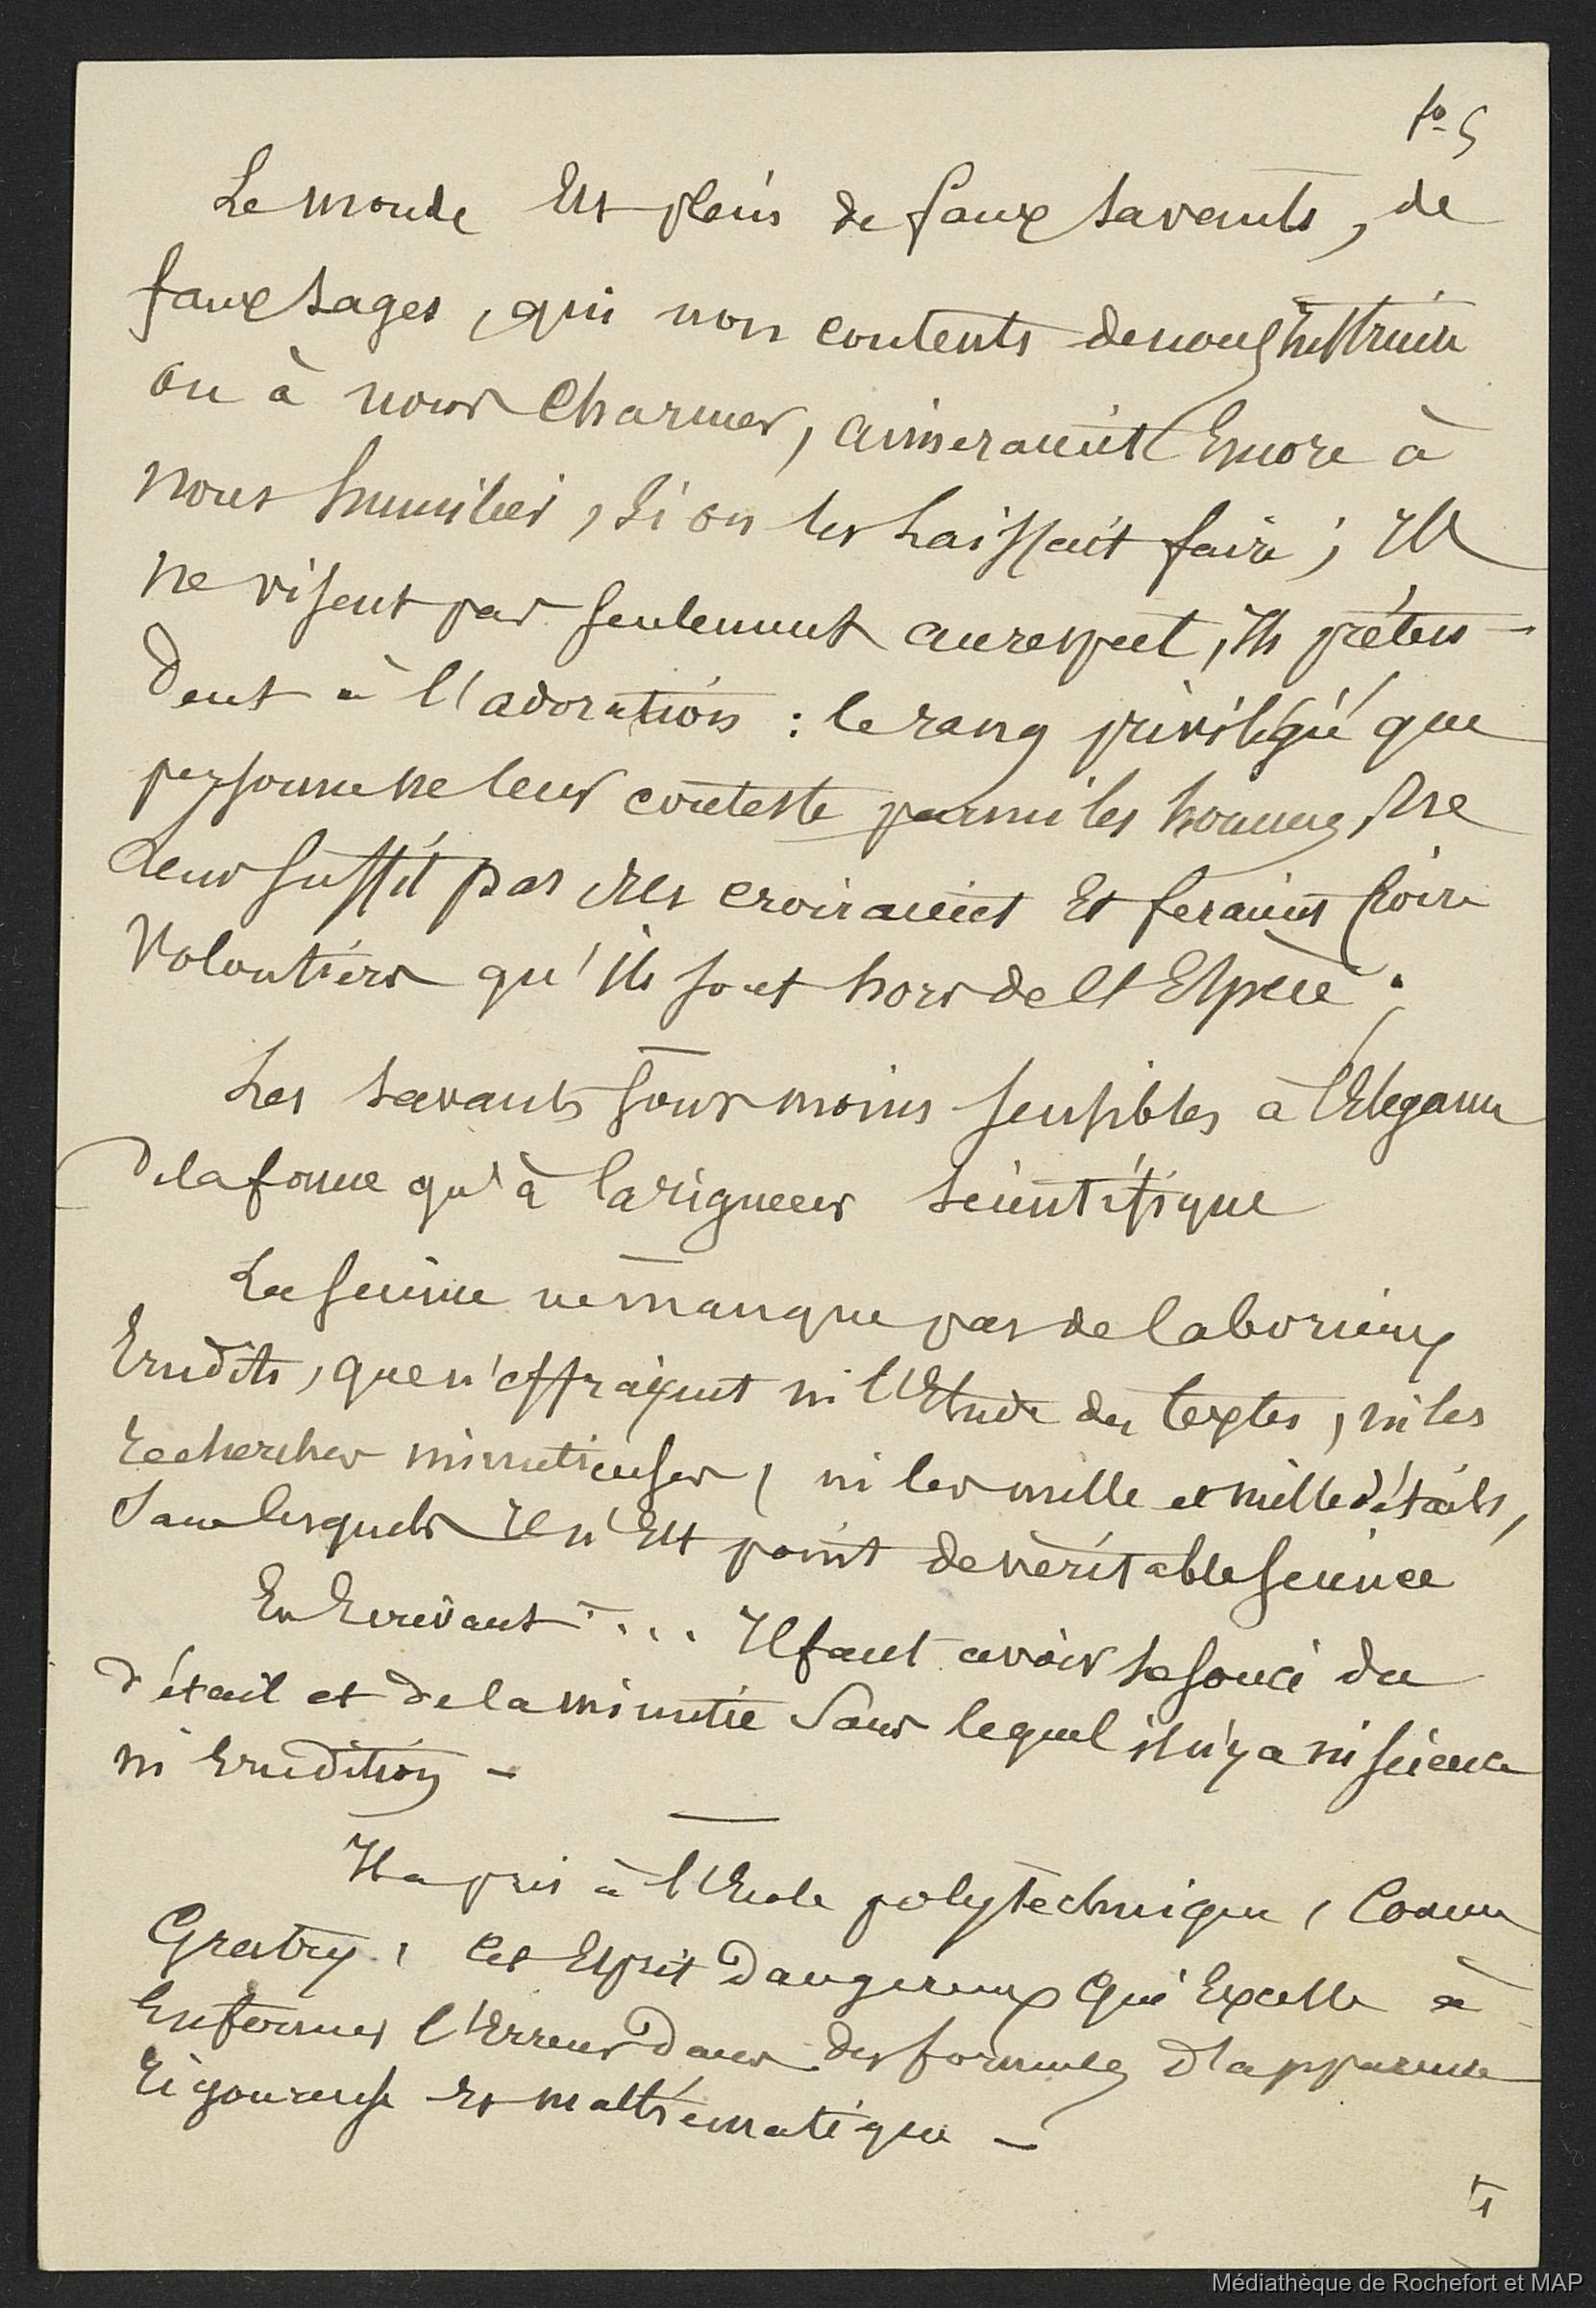 fo 5
Le monde est plein de faux savants, de
faux sages, qui non contents de nous instruire
ou à nous charmer, aimeraient encore à
nous humilier, si on les laissait faire ; Ils
ne visent pas seulement au respect, ils préten-
dent à l'adoration : le rang privilégié que
personne ne leur conteste parmi les hommes, ne
leur suffit pas ; ils croiraient et feraient croire
volontiers qu'ils sont hors de l'Espèce.
Les savants sont moins sensibles à l'Elegance
de la forme qu'à la rigueur scientifique
La science ne manque pas de laborieux
Erudits, que n'effrayent ni l'Etude des textes, ni les
recherches minutieuses, ni les mille et mille détails,
sans lesquels il n'est point de véritable science
En Ecrivant .... Il faut avoir le souci du
détail et de la minutie sans lequel il n'y a ni science
ni Erudition -
Il a pris à l'Ecole polytechnique, comme
Gratry, cet Esprit dangereux qui Excelle à
Enfermer l'Erreur dans des formules d'apparence
rigoureuse et mathématique -
Médiathèque de Rochefort et MAP